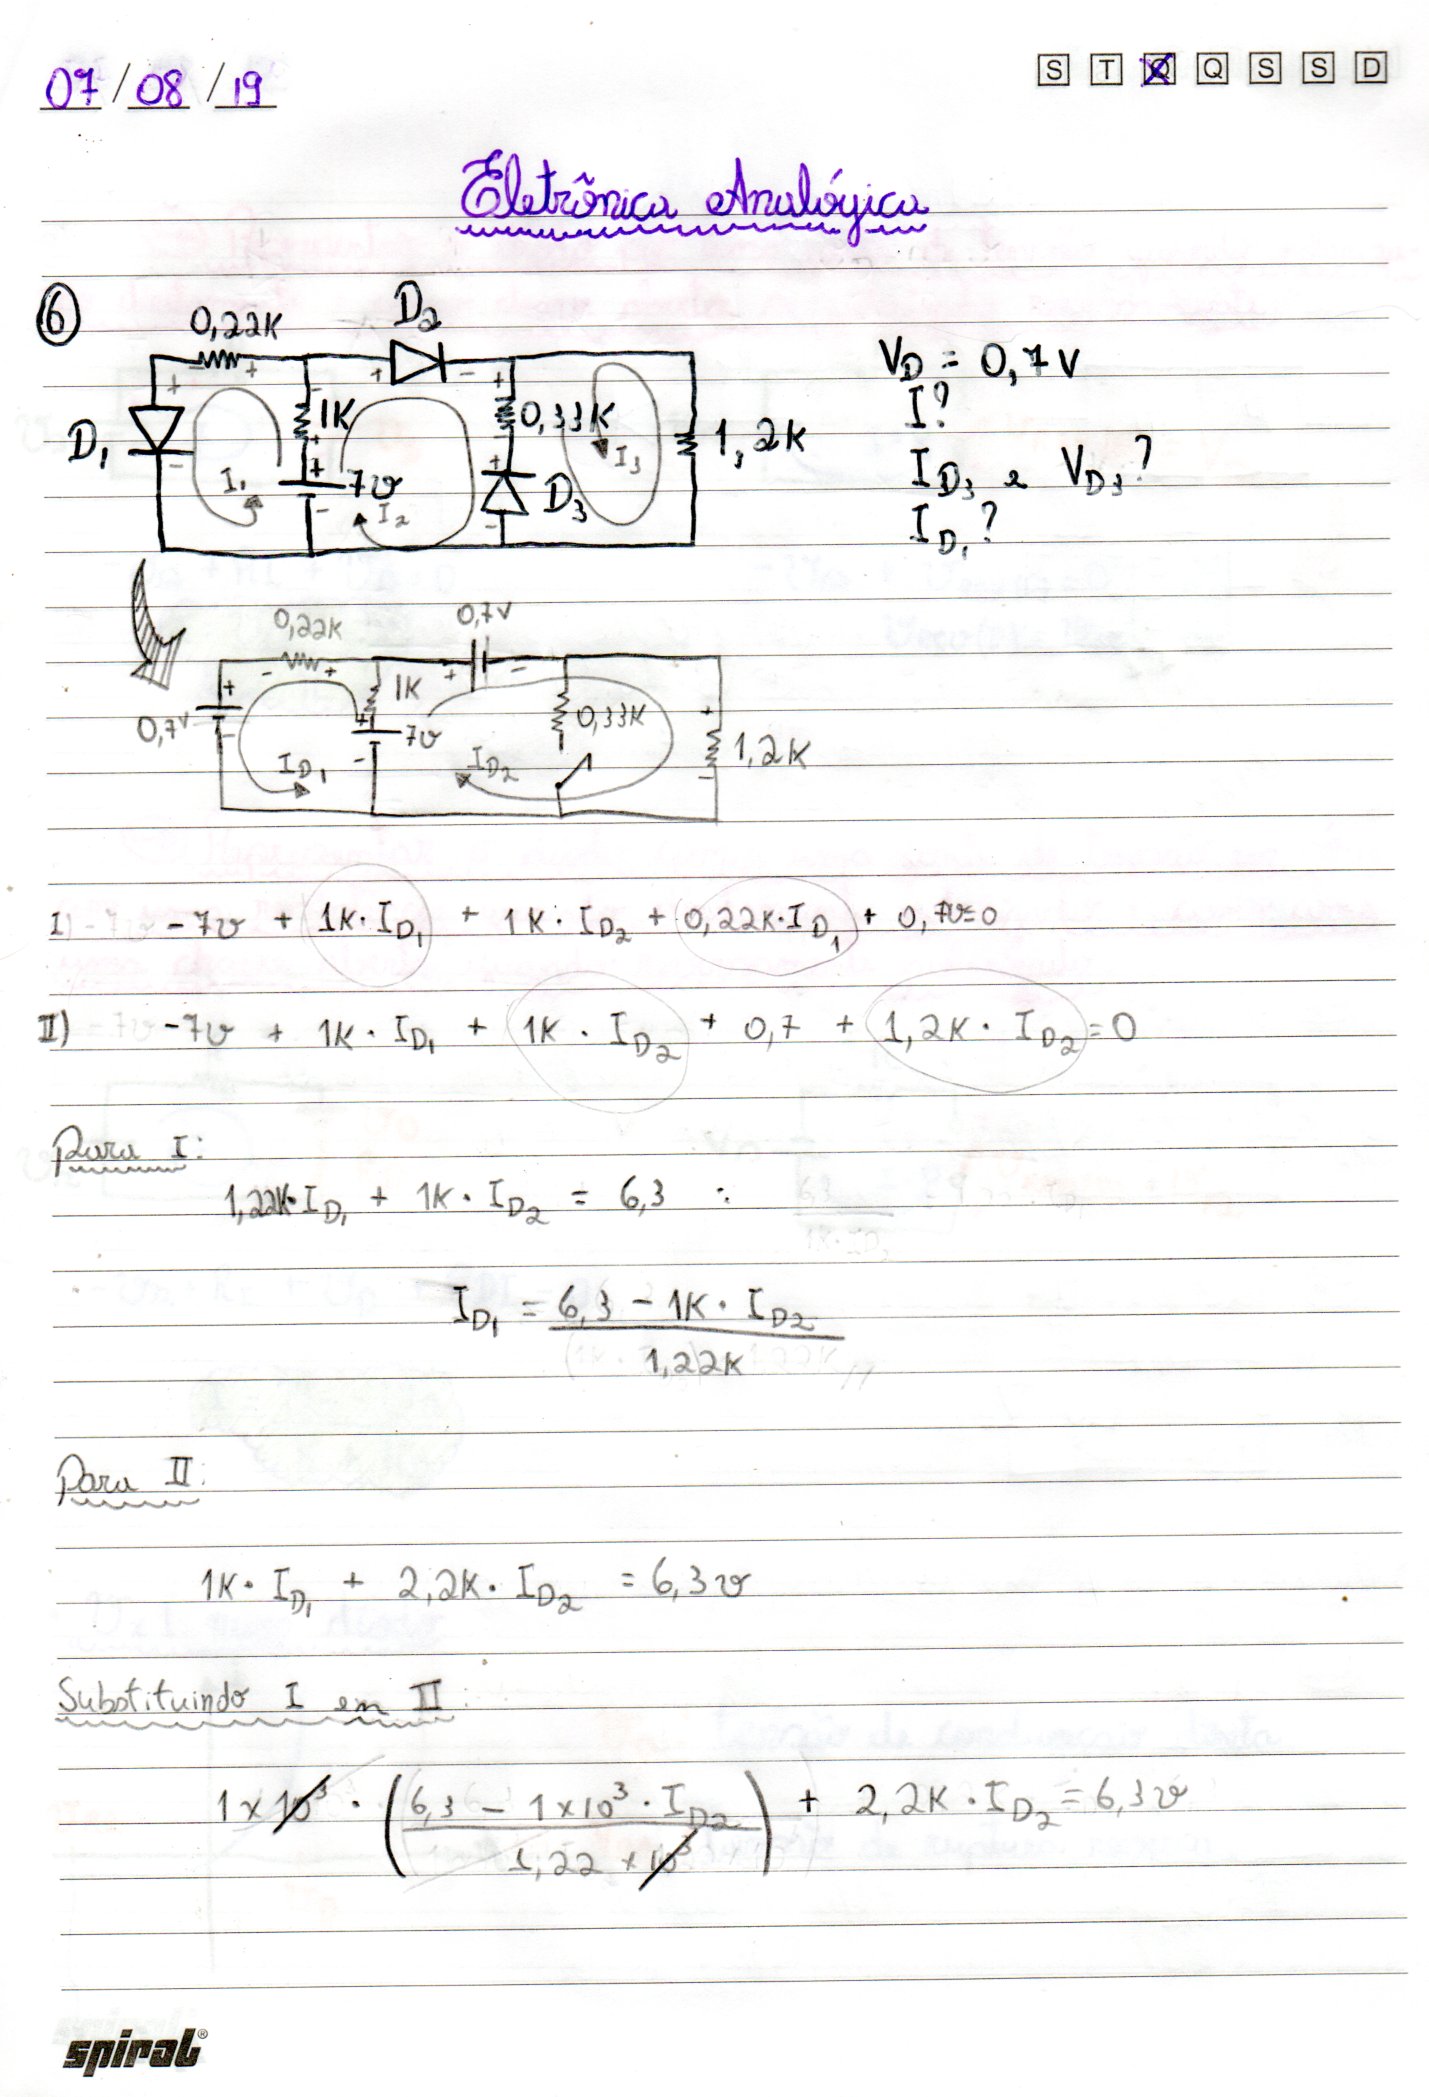 07/08/19
S T Q Q S S D
Eletrônica Analógica
6
0,22K D2
D1 1K 7v 0,33K D3 1,2K
I1 I2 I3
VD = 0,7V
I?
ID3 e VD3?
ID1?
0,22K 0,7V
0,7V 1K 7v 0,33K 1,2K
ID1 ID2
I) -7v -7v + 1K·ID1 + 1K·ID2 + 0,22K·ID1 + 0,7v=0
II) -7v + 1K·ID1 + 1K·ID2 + 0,7 + 1,2K·ID2 = 0
Para I:
1,22K·ID1 + 1K·ID2 = 6,3 ∴
ID1 = 6,3 - 1K·ID2
1,22K
Para II:
1K·ID1 + 2,2K·ID2 = 6,3v
Substituindo I em II:
1x10³·(6,3 - 1x10³·ID2) + 2,2K·ID2 = 6,3v
1,22 x10³
spiral®